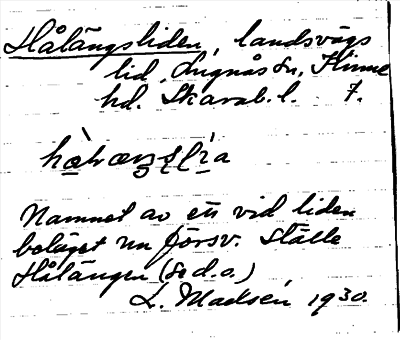 Hålängsliden, landsvägs
lid, Lugnås sn, Kinne
hd. Skarab. l. 7.
Namnet av en vid liden
beläget nu försv. ställe
Hålängen (se d. o.)
L. Madsén 1930.